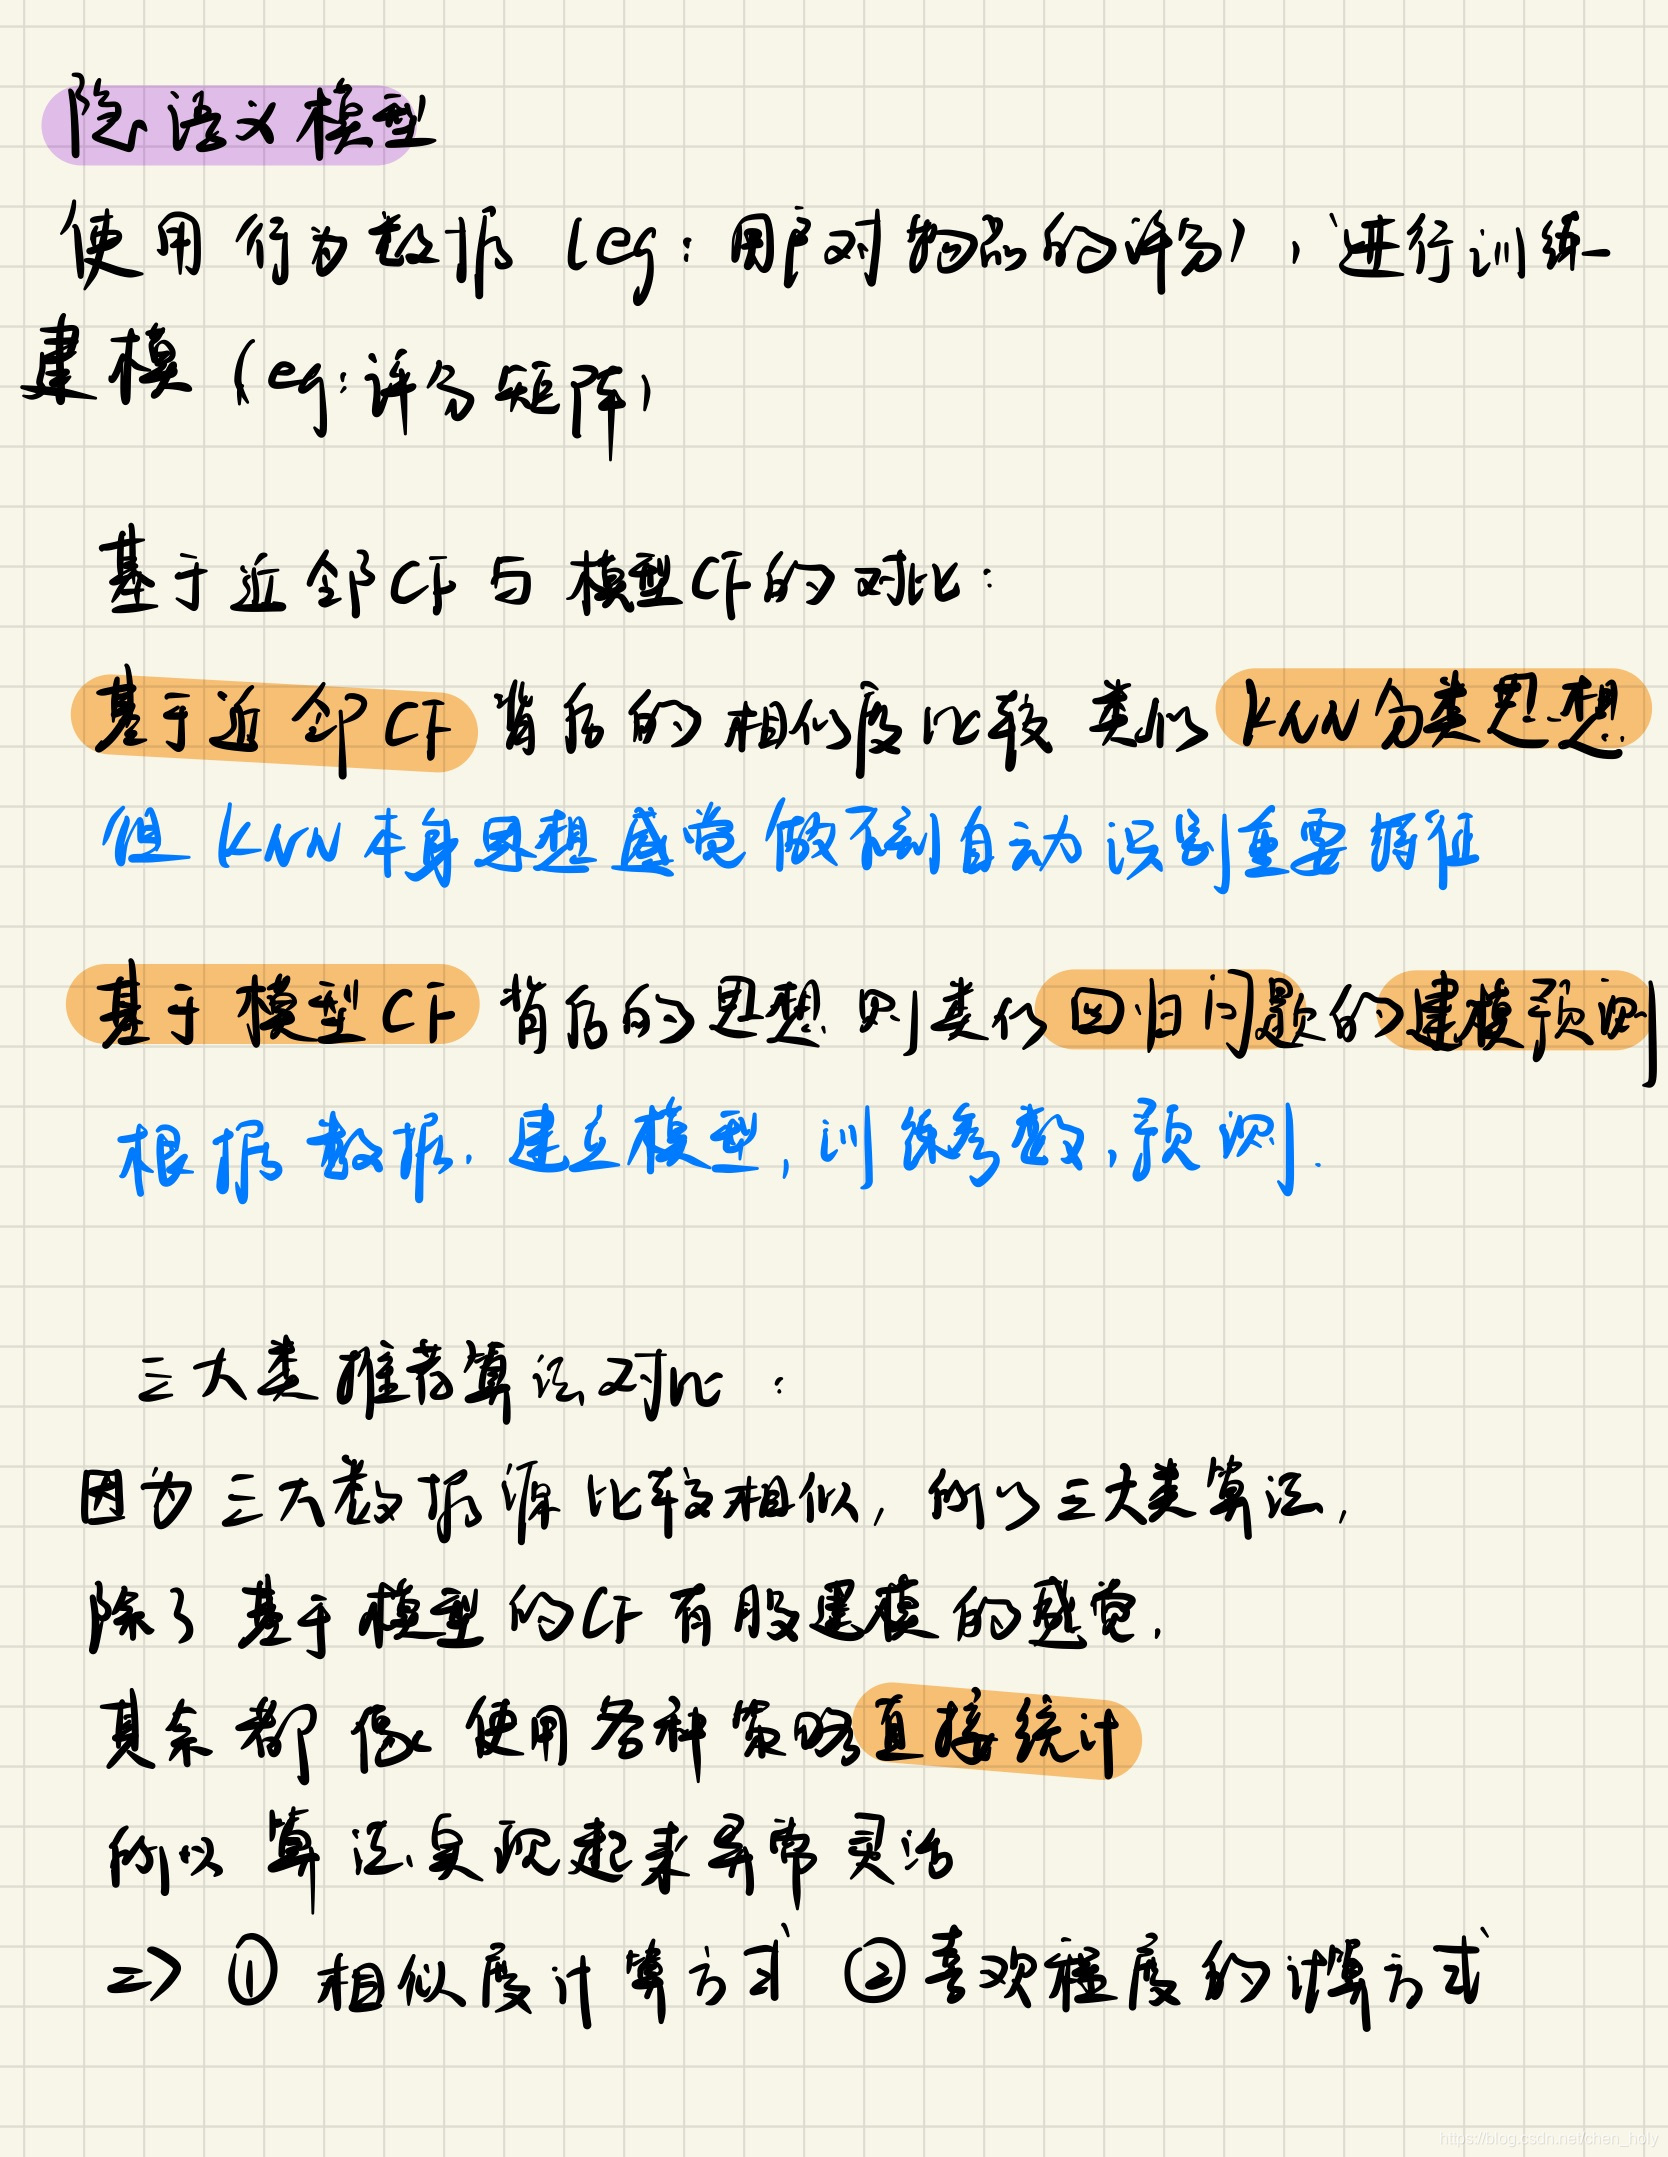 隐语义模型
使用行为数据(eg:用户对物品的评分),进行训练
建模(eg:评分矩阵)
基于近邻CF与模型CF的对比:
基于近邻CF背后的相似度比较类似KNN分类思想
但KNN本身思想感觉做不到自动识别重要特征
基于模型CF背后的思想则类似回归问题的建模预测
根据数据.建立模型,训练参数,预测.
三大类推荐算法对比:
因为三大数据源比较相似,所以三大类算法,
除了基于模型的CF有股建模的感觉,
其余都像使用各种策略直接统计
所以算法实现起来异常灵活
=> ①相似度计算方式 ②喜欢程度的计算方式
https://blog.csdn.net/chen_holy